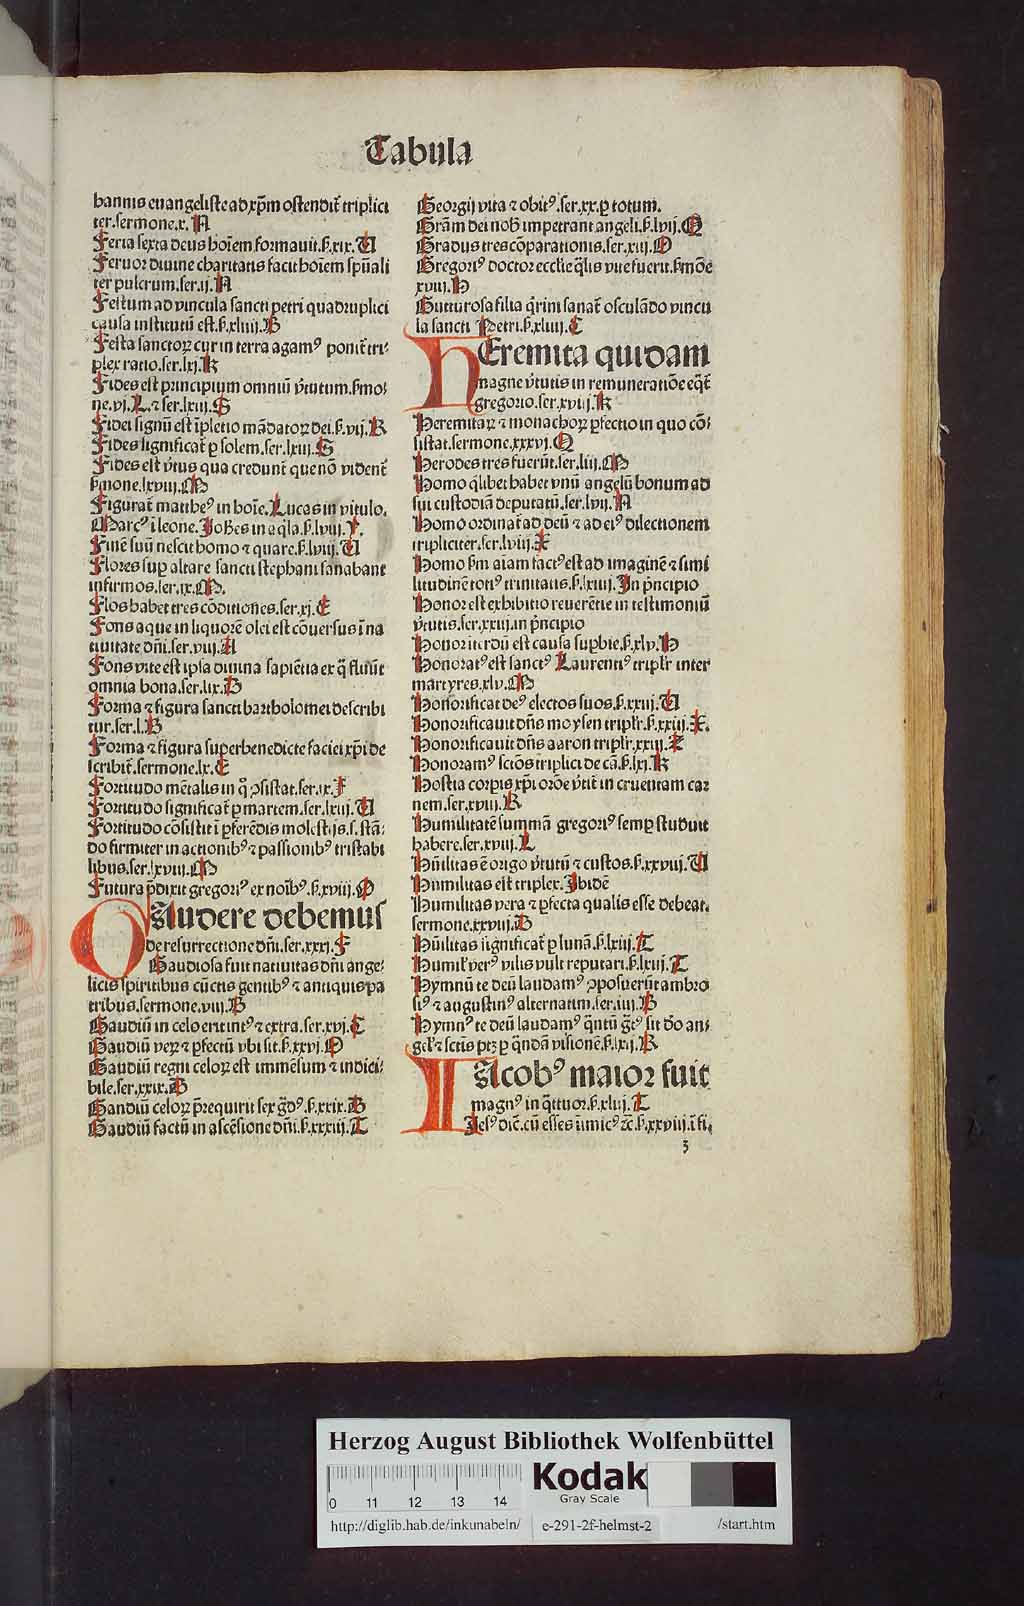 Tabula
hannis euangeliste ad xp̄m ostendit̄ triplici
ter.sermone.x.N
Feria sexta deus hoīem formauit.ß.xix.U
Feruor diuine charitatis facit hoīem spūali
ter pulcrum.ser.ij.N
Festum ad vincula sancti petri quadruplici
causa institutū est.ß.xliiij.B
Festa sanctoꝝ cur in terra agamꝰ ponit̄ tri-
plex ratio.ser.lxj.K
Fides est principium omniū v̄tutum.ßmo-
ne.vj.L.⁊ ser.lxiij.S
Fidei signū est īpletio mādatoꝝ dei.ß.vij.R
Fides significat̄ ꝑ solem.ser.lxiij.S
Fides est v̄tus qua credunt̄ que nō vident̄
ßmone.lxviij.M
Figurat̄ mattheꝰ in hoīe.Lucas in vitulo.
Marcꝰ ī leone.Johēs in aq̄la.ß.lviij.Y.
Finē suū nescit homo ⁊ quare.ß.lviij.U
Flores suꝑ altare sancti stephani sanabant
infirmos.ser.ix.M.
Flos habet tres cōditiones.ser.xj.E
Fons aque in liquorē olei est cōuersus ī na
tiuitate dn̄i.ser.viij.A
Fons vite est ipsa diuina sapiētia ex q̄ fluūt
omnia bona.ser.lix.B
Forma ⁊ figura sancti bartholomei describi
tur.ser.l.B
Forma ⁊ figura superbenedicte faciei xp̄i de
scribit̄.sermone.lx.E
Fortitudo mētalis in q̊ ꝯsistat.ser.ix.F
Fortitudo significat̄ ꝑ martem.ser.lxiij.U
Fortitudo cōsistit ī ꝑferēdis molestijs.s.stā-
do firmiter in actionibꝰ ⁊ passionibꝰ tristabi
libus.ser.lxviij.M
Futura p̄dixit gregoriꝰ ex noībꝰ.ß.xviij.O
GAudere debemus
de resurrectione dn̄i.ser.xxxj.F
Gaudiosa fuit natiuitas dn̄i ange-
licis spiritibus cūctis gentibꝰ ⁊ antiquis pa
tribus.sermone.viij.B
Gaudiū in celo erit intꝰ ⁊ extra.ser.xvj.C
Gaudiū veꝝ ⁊ ꝑfectū vbi sit.ß.xxvj.O
Gaudiū regni celoꝝ est immēsum ⁊ indici-
bile.ser.xxix.B
Gaudiū celoꝝ p̄requirit sex g̊dꝰ.ß.xxix.B
Gaudiū factū in ascēsione dn̄i.ß.xxxiij.T
Georgij vita ⁊ obitꝰ.ser.xx.ꝑ totum.
Grām dei nob̄ impetrant angeli.ß.lvij.Q
Gradus tres cōparationis.ser.xiij.O
Gregoriꝰ doctor ecclīe q̄lis vite fuerit.ßmōe
xviij.H
Gutturosa filia q̄rini sanat̄ osculādo vincu
la sancti Petri.ß.xliiij.C
HEremita quidam
magne v̄tutis in remuneratiōe eq̄t̄
gregorio.ser.xviij.K
Heremitaꝝ ⁊ monachoꝝ ꝑfectio in quo cō-
sistat.sermone.xxxvj.Q
Herodes tres fuerūt.ser.liij.M
Homo q̄libet habet vnū angelū bonum ad
sui custodiā deputatū.ser.lvij.N
Homo ordinat̄ ad deū ⁊ ad eiꝰ dilectionem
tripliciter.ser.lviij.X
Homo ßm aīam factꝰ est ad imaginē ⁊ simi
litudinē totiꝰ trinitatis.ß.lxiij.In p̄ncipio
Honor est exhibitio reuerētie in testimoniū
v̄tutis.ser.xxiij.in p̄ncipio
Honor īterdū est causa suꝑbie.ß.xlv.H
Honoratꝰ est sanctꝰ Laurentiꝰ triplr̄ inter
martyres.xlv.M
Honorificat deꝰ electos suos.ß.xxiij.U
Honorificauit dn̄s moysen triplr̄.ß.xxiij.X.
Honorificauit dn̄s aaron triplr̄.xxiij.X
Honoramꝰ sctōs triplici de cā.ß.lxj.K
Hostia corpis xp̄i orōe v̄tit̄ in cruentam car
nem.ser.xviij.R
Humilitatē summā gregoriꝰ semꝑ studuit
habere.ser.xviij.L
Hūilitas ē origo v̄tutū ⁊ custos.ß.xxviij.U
Humilitas est triplex.Ibidē
Humilitas vera ⁊ ꝑfecta qualis esse debeat.
sermone.xxviij.B
Hūilitas significat̄ ꝑ lunā.ß.lxiij.T
Humil̓ verꝰ vilis vult reputari.ß.lxiij.T
Hymnū te deū laudamꝰ ꝯposuerūt ambro
siꝰ ⁊ augustinꝰ alternatim.ser.iiij.B
Hymnꝰ te deū laudamꝰ q̄ntū g̊tꝰ sit dō an-
gel̓ ⁊ sctīs ptꝫ ꝑ q̄ndā visionē.ß.lxij.R
IAcobꝰ maior fuit
magnꝰ in q̄ttuor.ß.xliij.T
Jesꝰ diē.cū esses īimicꝰ ⁊c̄.ß.xxviij.ī fi.
3
Herzog August Bibliothek Wolfenbüttel
0 11 12 13 14
Kodak
Gray Scale
http://diglib.hab.de/inkunabeln/ e-291-2f-helmst-2 /start.htm